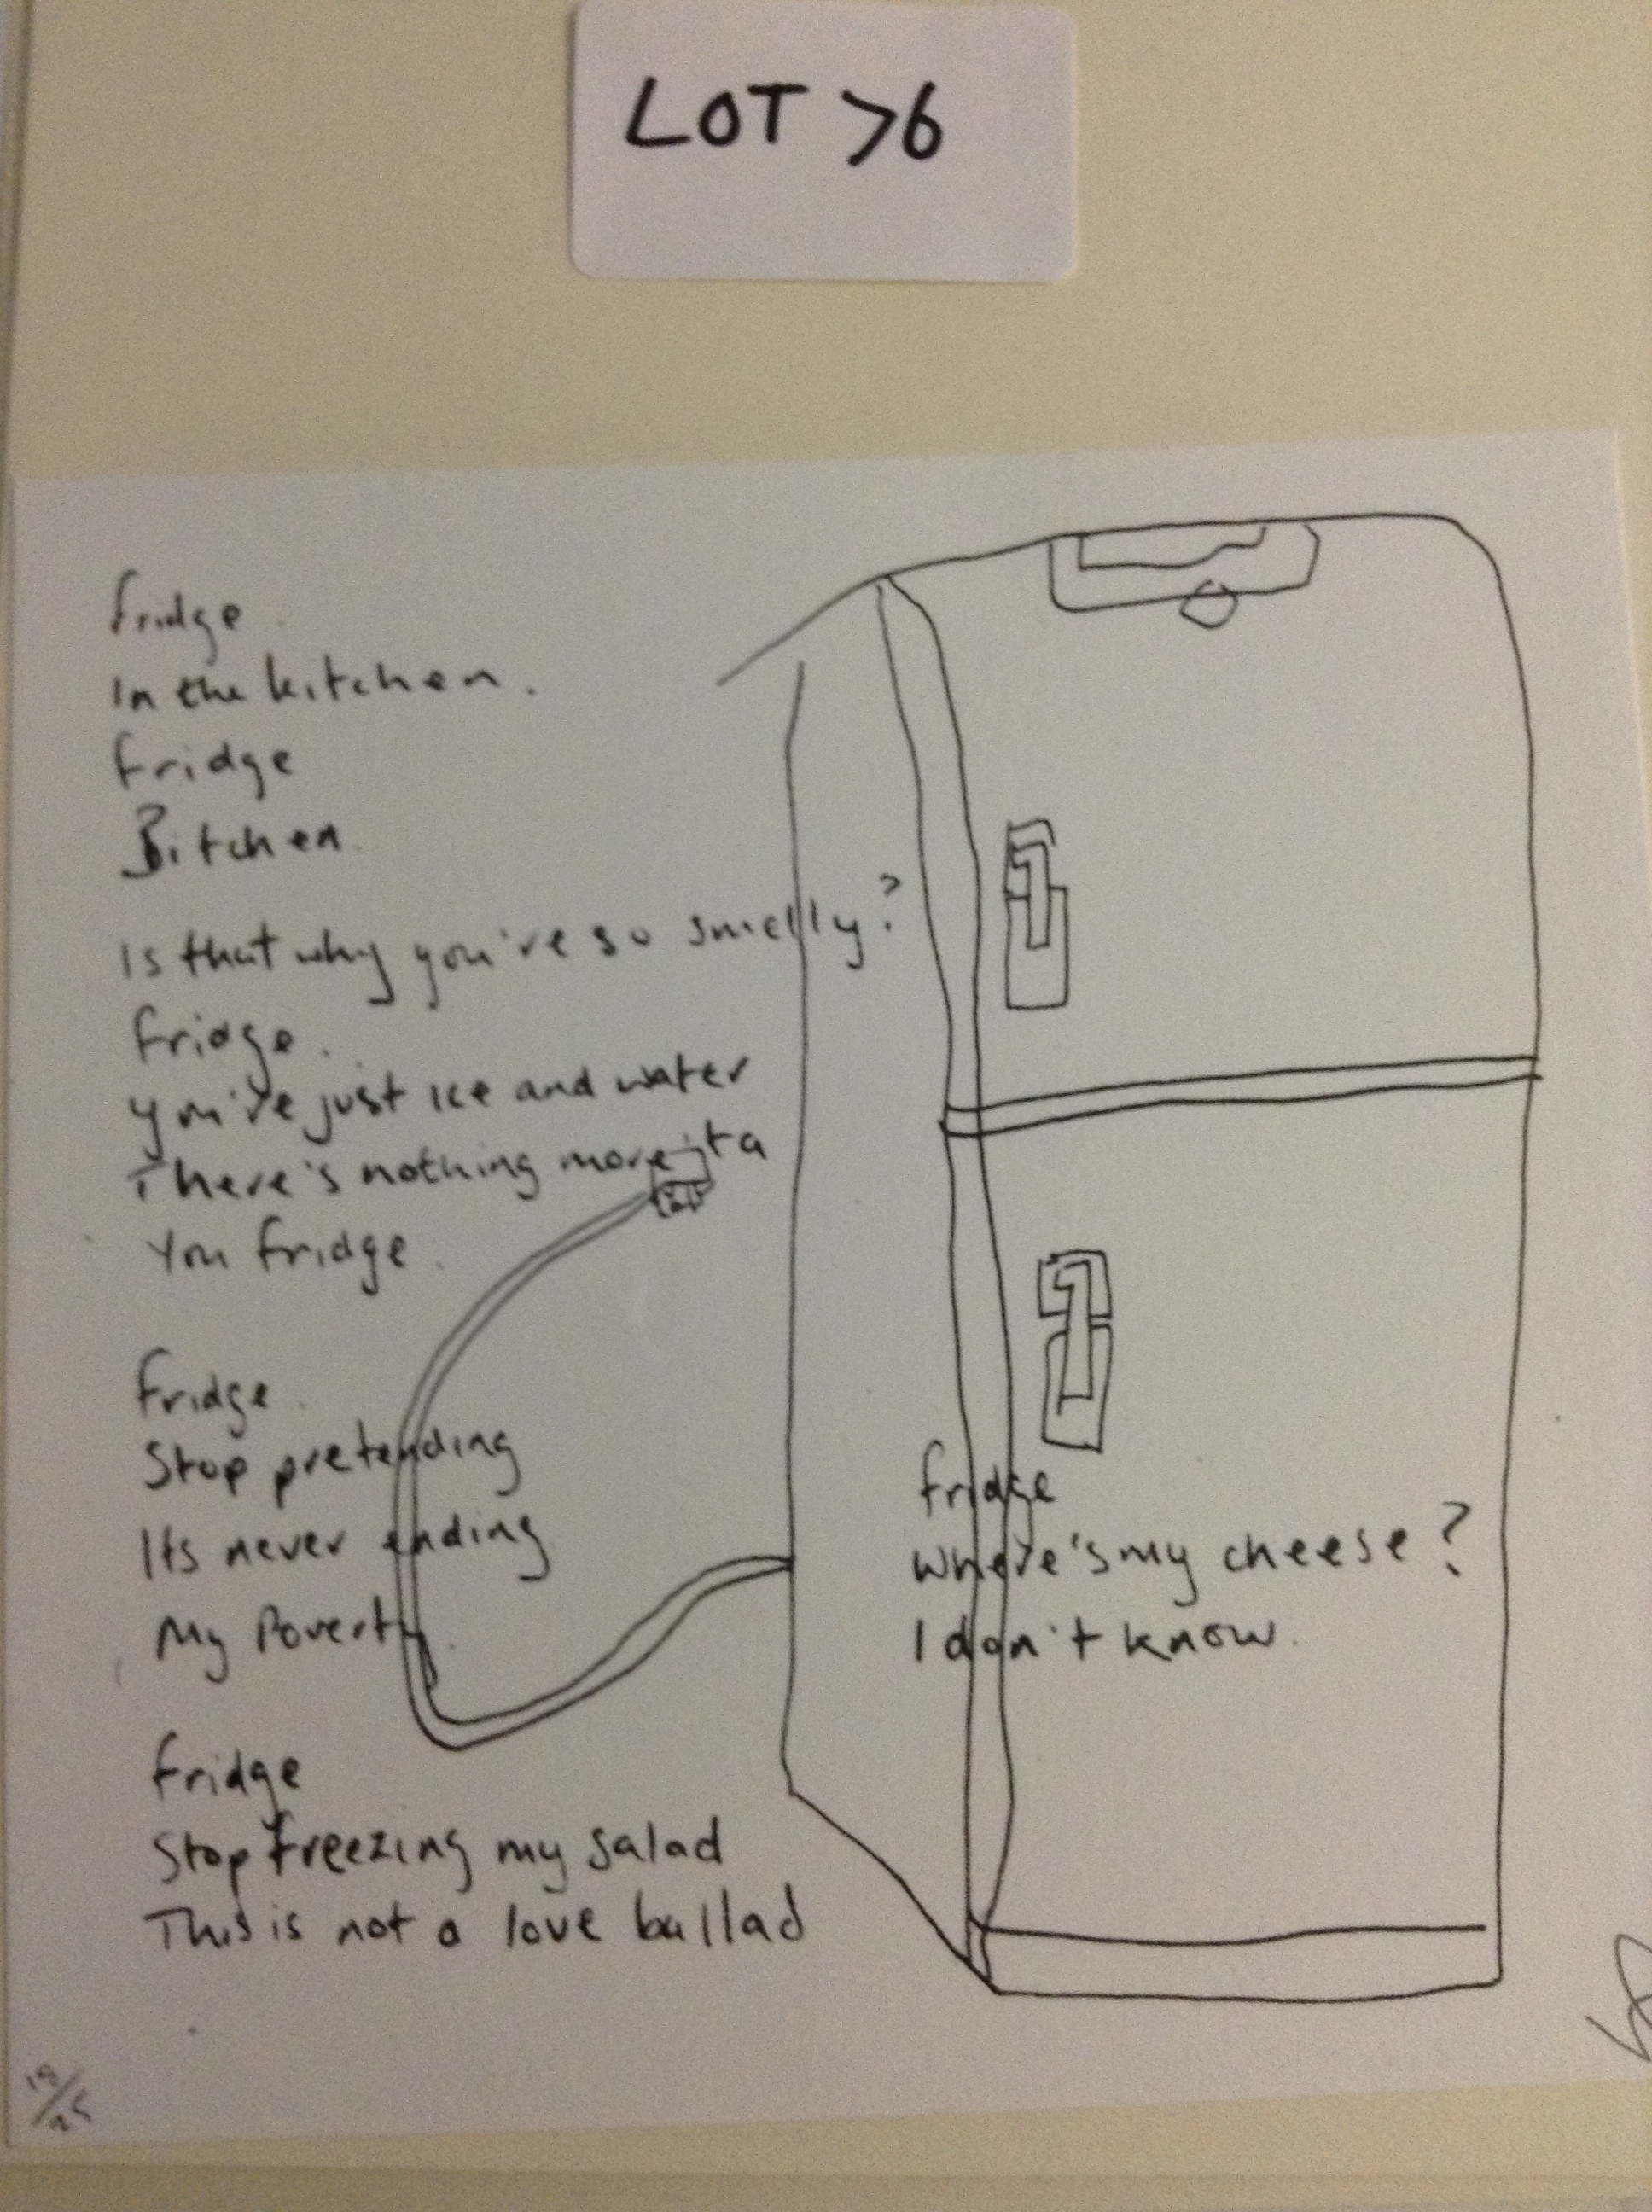 LOT 76
Fridge.
In the kitchen.
Fridge
Bitchen.
Is that why you're so smelly?
Fridge.
you're just ice and water
There's nothing more ta
You fridge.
Fridge.
Stop pretending
Its never ending
My Poverty.
Fridge
Where's my cheese?
I don't know.
Fridge
Stop freezing my salad
This is not a love ballad